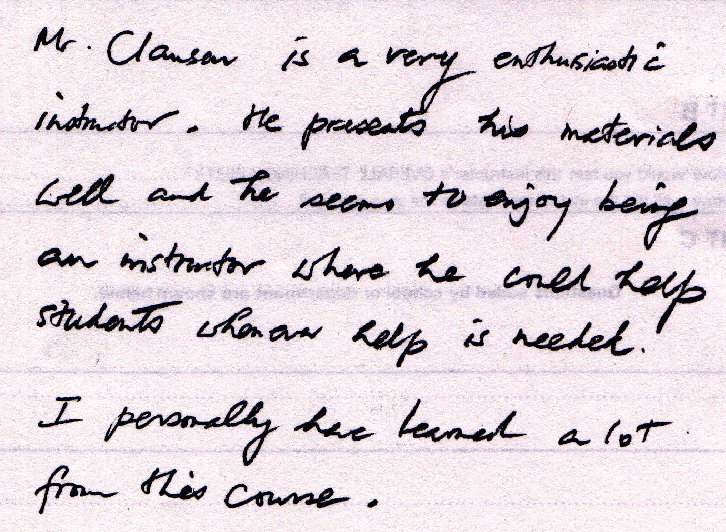 Mr. Clauson is a very enthusiastic
instructor. He presents his materials
well and he seems to enjoy being
an instructor where he could help
students whenever help is needed.
I personally have learned a lot
from this course.